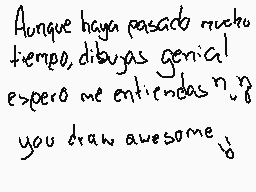 Aunque haya pasado mucho
tiempo, dibujas genial
espero me entiendas n.n
you draw awesome